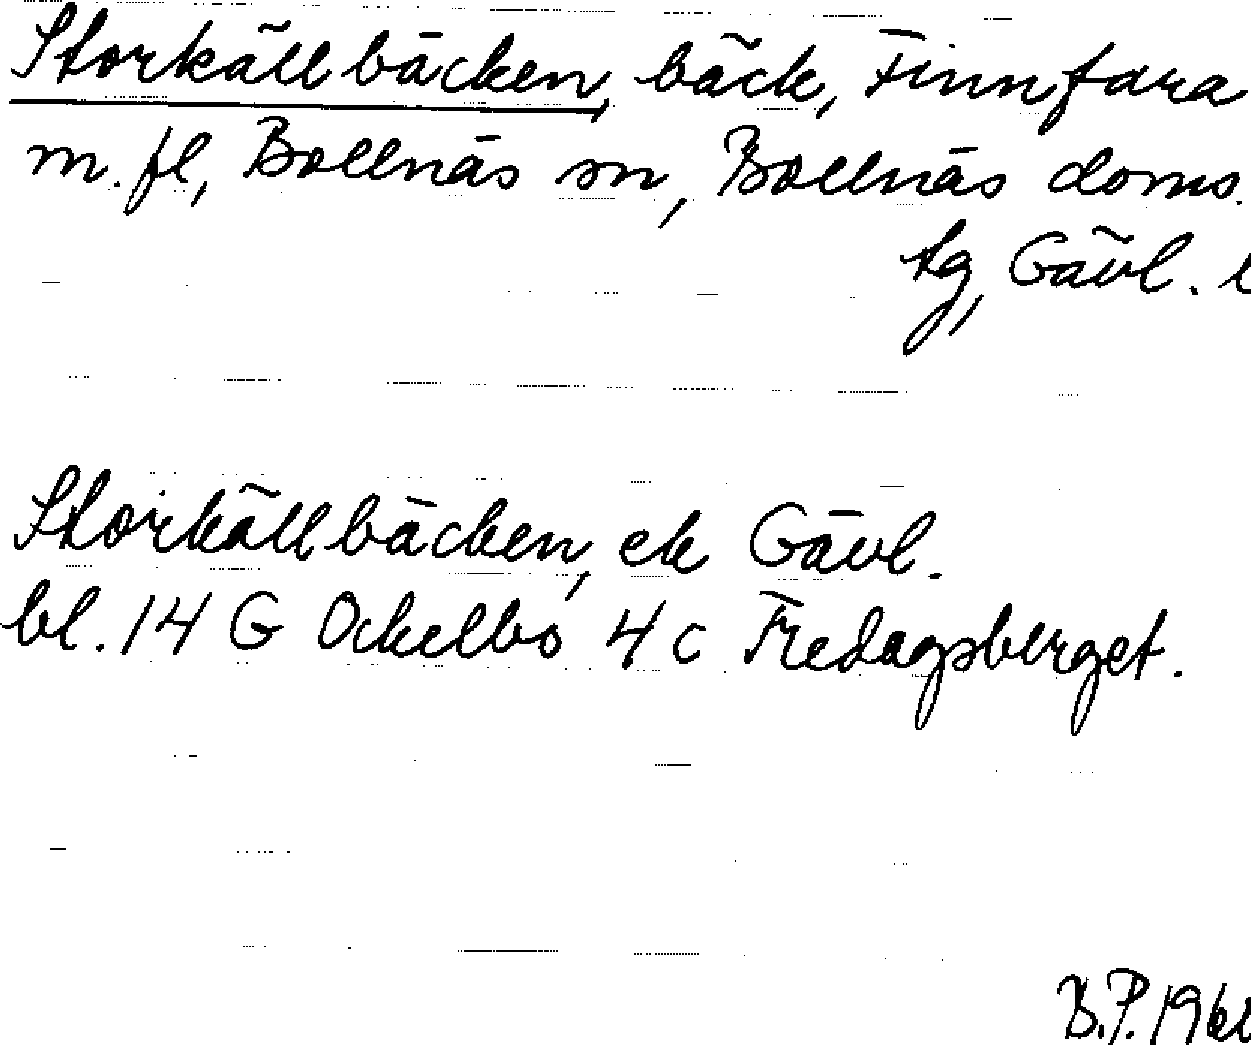 Storkällbäcken, bäck, Finnfara
m. fl, Bollnäs sn, Bollnäs doms.
tg, Gävl. l
Storkällbäcken, ek Gävl.
bl. 14 G Ockelbo 4 c Fredagsberget.
B.P.